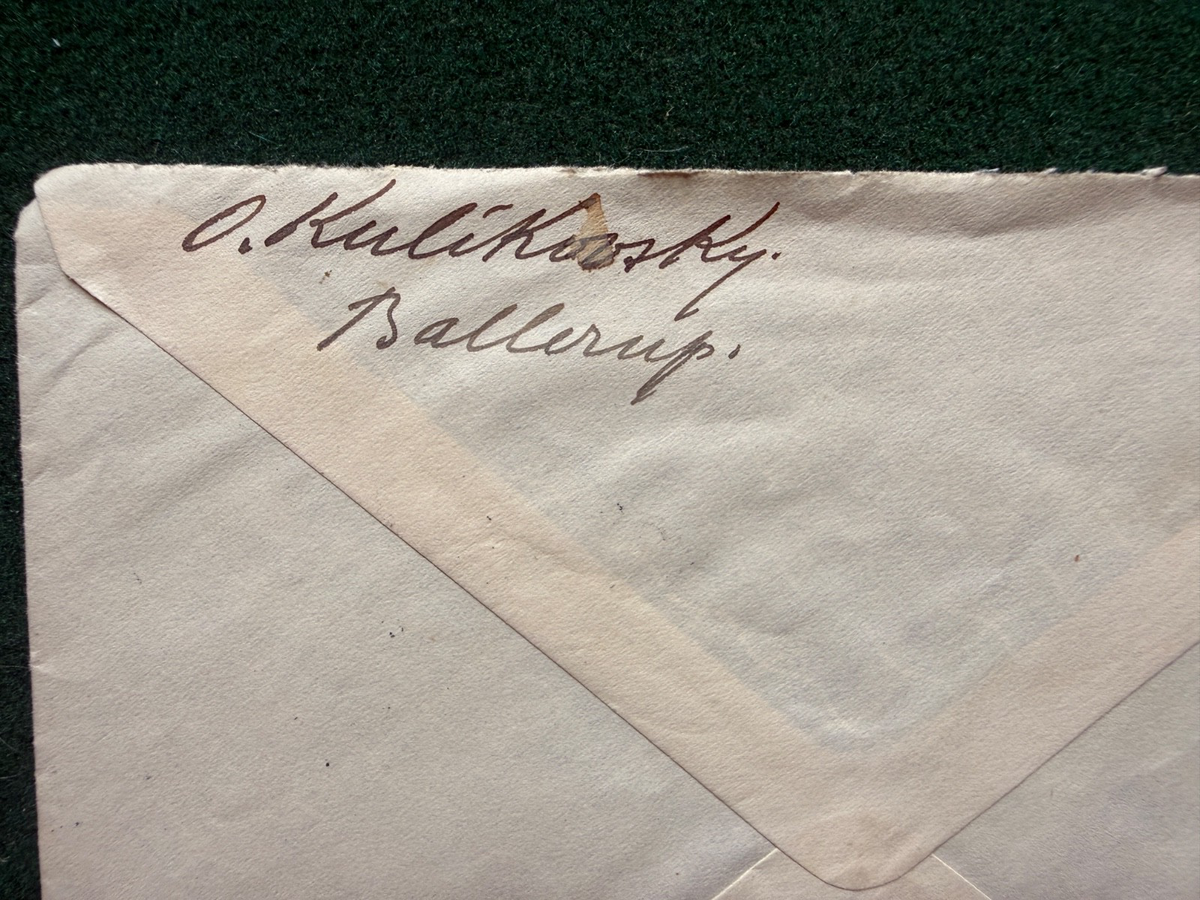 O. Kulikovsky.
Ballerup.